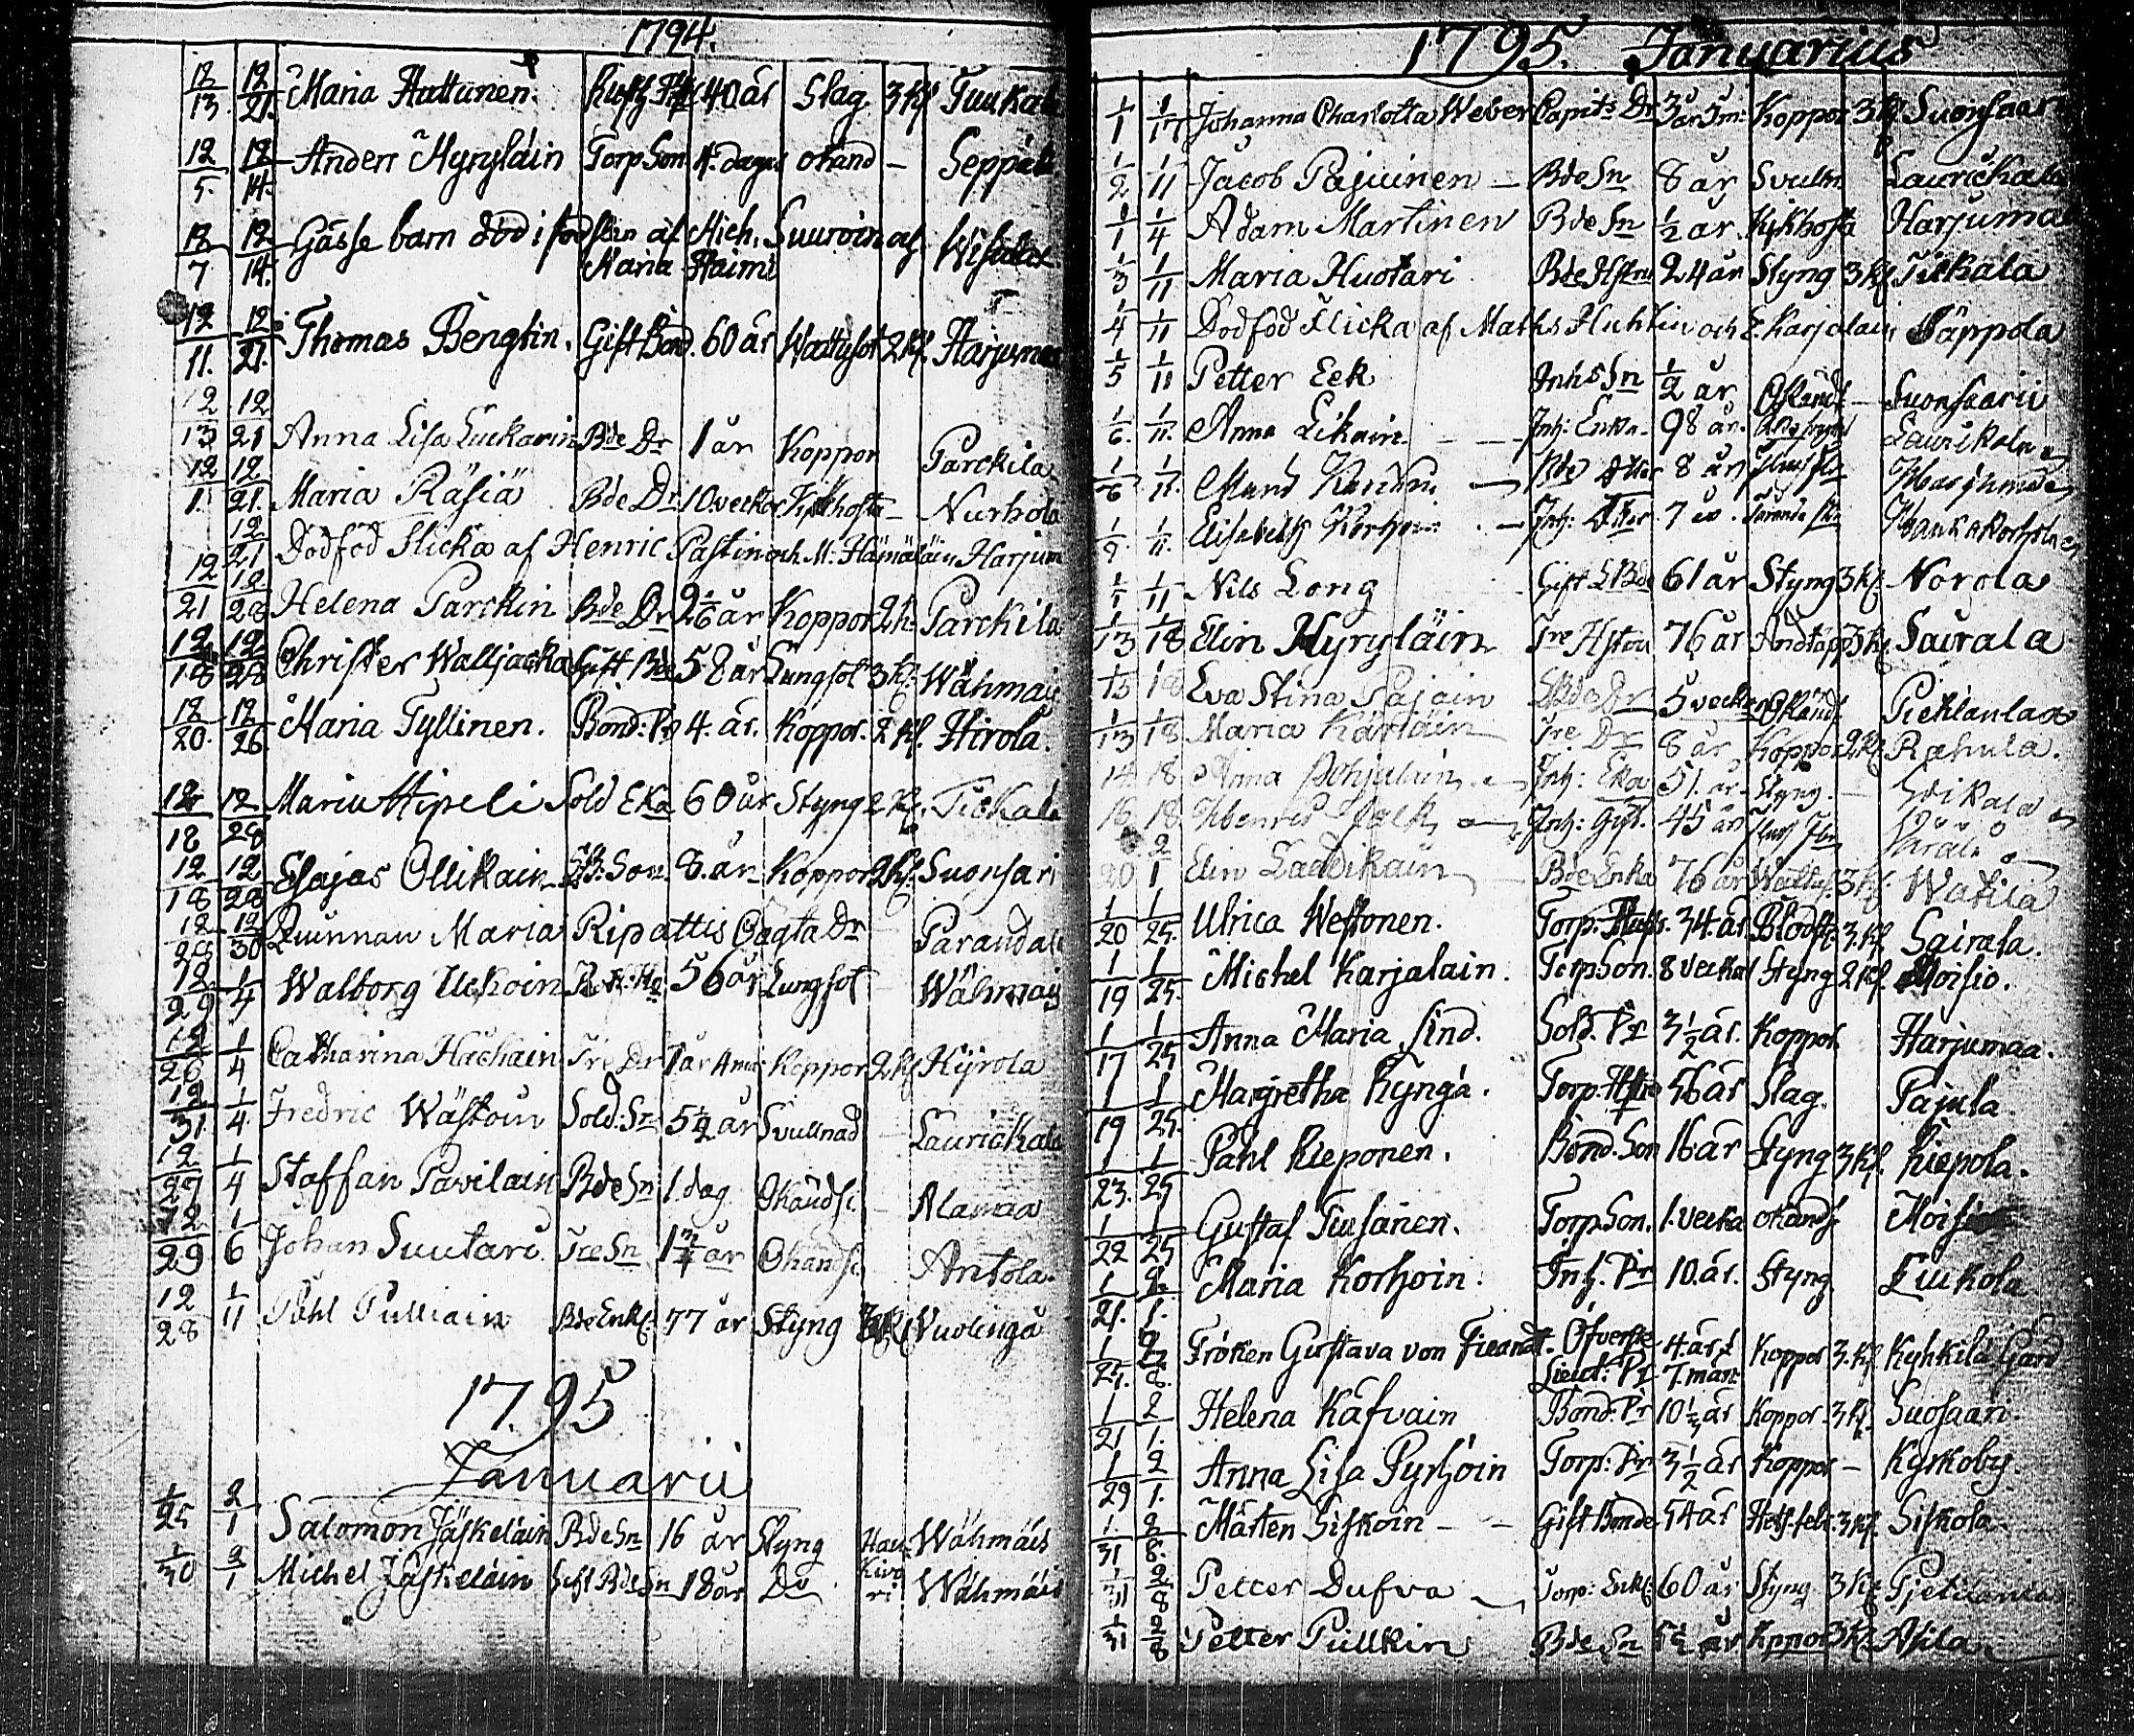 1794.
12/13. 12/21. Maria Hattunen. 40 år Slag 3 Kl
12/5. 12/14. Anders Hyryläin Torp Son 4. dagar okänd — Seppälä
12/7 12/14. Gåsse barn död i födslen af Mich. Suuroin af
Maria Haimi
12/11. 12/21. Thomas Bengtin. Gift Bond. 60 år Wattusot 2 Kl. Harjumaa
12/13 12/21 Anna Lisa Luckarin Bde Dr 1 år Koppor Parckila
12/1. 12/21. Maria Räsiä Bde Dr 10 veckor Kikhosta — Nurhola
12/21 Dödföd Flicka af Henric Pastin och M: Hämäläin Harjum
12/21 12/28 Helena Parckin Bde Dr år Koppor 2 k. Parckila
12/18 12/28 Christer Walljacka Gift Bde 58 år Lungsot 3 Kl. Wähmais
12/20. 12/26. Maria Tyllinen. Bond: Dr 4. år. Koppor. 2 Kl. Hirola.
12/18 12/28 Maria Hipeli Sold Eka 60 år Styng 2 Kl.
12/18 12/28 Esajas Ollikain Son. 8. år Koppor 2 Kl. Suonsari
12/28 12/30 Quinnan Maria Ripattis Oägta Dr
12/29 1/4 Walborg Uckoin 56 år Lungsot — Wähmais
12/26 1/4 Catharina Hachain Tre Dr 7 år 4 mån Koppor 2 Kl Kyrola
12/31 1/4 Fredric Wästoin Sold: Sn 5 1/2 år Svullnad — Laurickala
12/27 1/4 Staffan Pavilain Bde Sn 1. dag Okändsj. — Alamaa
12/29 1/6 Johan Suutari Tre Sn 1 3/4 år Okändsj. Antola.
12/28 1/11 Påhl Pulliain Bde Enkl. 77 år Styng 3 Kl Vuolinga
1795
Januarii
1/25 2/1 Salomon Jäskeläin Bde Sn 16 år Styng Hau- Wähmäis
1/30 2/1 Michel Jäskeläin Gift Bde Sn 18 år Do kivo ri Wähmäis
1795. Januarius
1/1 1/17 Johanna Charlotta Weber Capits Dr 3 år 5 m: Koppor 3 Kl Suonsaari
1/2 1/11 Jacob Pajuinen — Bde Sn 8 år Svulln Laurickala
1/1 1/4 Adam Martinen Bde Sn 1/2 år Kikhosta Harjumaa
1/3 1/11 Maria Huotari Bde Hstru 24 år Styng 3 Kl. Tilkala
1/4 1/11 Dödföd Flicka af Maths Huhtin och E. Karjalain Säppola
1/5 1/11 Petter Eek Inhs Sn 1/2 år Okändt — Suonsaari
1/6. 1/11. Anna Likain — — Inh: Enka. 98 år. Laurikala
1/6 1/11. 8 år
1/9. 1/11. Elisabeth Korhoin — Inh: 7 år.
1/1 1/11 Nils Long Gift 61 år Styng 3 Kl. Norola
1/13 1/18 Elin Hyryläin Tre Hstru 76 år Andtäppa 3 Kl. Sairala
1/13 1/18 Eva Stina Pajain Dr 5 veckor Okändt Pieklanlax
1/13 1/18 Maria Kärläin Tre Dr 8 år Koppor 2 Kl. Rahula.
14 18 Anna Pohjalain — Inh: Eka 51. år. Styng. —
16 18 Henric Falk — Inh: Gift. 45 år
1/20 2/1 Elin Laadikain Bde Enka 76 år Wattus. 3 Kl. Watila
1/20 1/25. Ulrica Westonen. Torp. 34. år Blodst. 3. Kl Sairala.
1/19 1/25. Michel Karjalain. Torp Son. 8 veckor Styng 2 Kl. Moisio.
1/17 1/25 Anna Maria Lind. Sold. Dr 3 1/2 år. Koppor Harjumaa.
1/19 1/25. Margretha Kyngä. Torp. Hstro 56 år Slag. Pajula.
1/23. 1/25 Pahl Kieponen. Bond. Son 16 år Styng 3 Kl. Kiepola.
1/22 1/25 Gustaf Tiusanen. Torp Son. 1. vecka okändsj. Moisio
1/21. 2/1. Maria Korhoin. Inh. Dr 10. år. Styng Liukola
1/25. 2/8. Fröken Gustava von Fieandt. Öfverste 4. år & Koppor 3. Kl Kyhkilä Gård
Lieut: Dr 7. mån:
1/21 2/1. Helena Kafvain Bond. Dr 10 1/3 år Koppor 3 Kl. Suosaari.
1/29 2/1. Anna Lisa Pyrhöin Torp: Dr 3 1/2 år Koppor — Kyrkoby
1/31 2/8. Mårten Siskoin — — Gift Bonde 54 år Het. feb. 3 Kl Siskola.
1/31 2/8 Petter Dufva — Torp: Enkl. 60 år Styng 3 Kl
1/31 2/8 Petter Pullkin Bde Sn 5 1/2 år Kppor 3 Kl Akila